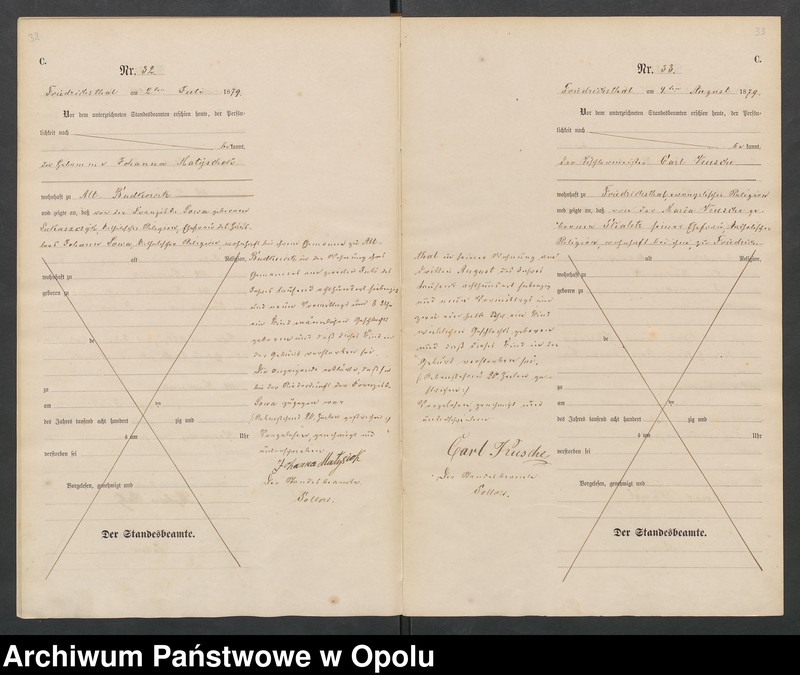 32
C.
Nr. 32.
Friedrichsthal am 2ten Juli 1879.
Vor dem unterzeichneten Standesbeamten erschien heute, der Persön-
lichkeit nach
bekannt,
Johanna
wohnhaft zu Alt Budkowitz
und zeigte an, daß von der Franziska Sowa geborenen
katholischer Religion, Ehefrau des
Johann Sowa, katholischer Religion, wohnhaft bei ihrem Ehemanne zu Alt-
alt Religion,
wohnhaft zu
geboren zu
de
zu
am ten
des Jahres tausend acht hundert zig und
um Uhr
verstorben sei
Vorgelesen, genehmigt und
Der Standesbeamte.
Budkowitz in der Wohnung des
Ehemannes am zweiten Juli des
Jahres tausend achthundert siebenzig
und neun Vormittags um 8 Uhr
ein Kind männlichen Geschlechts
geboren und daß dieses Kind in
der Geburt verstorben sei.
Die Anzeigende erklärte, daß sie
bei der Niederkunft der Franziska
Sowa zugegen war.
Vorgelesen, genehmigt und
unterschrieben
Johanna Matysiok
Der Standesbeamte
33
C.
Nr. 33.
Friedrichsthal am 4ten August 1879.
Vor dem unterzeichneten Standesbeamten erschien heute, der Persön-
lichkeit nach
bekannt,
der Tischlermeister Carl Krusche
wohnhaft zu Friedrichsthal, evangelischer Religion
und zeigte an, daß von der Maria Krusche ge-
borenen seiner Ehefrau, katholischer
Religion, wohnhaft bei ihm zu Friedrichs-
alt Religion,
wohnhaft zu
geboren zu
de
zu
am ten
des Jahres tausend acht hundert zig und
um Uhr
verstorben sei
Vorgelesen, genehmigt und
Der Standesbeamte.
thal in seiner Wohnung am
dritten August des Jahres
tausend achthundert siebenzig
und neun Vormittags um
ein halb Uhr ein Kind
weiblichen Geschlechts geboren
und daß dieses Kind in der
Geburt verstorben sei.
Vorgelesen, genehmigt und
unterschrieben
Carl Krusche
Der Standesbeamte
Archiwum Państwowe w Opolu